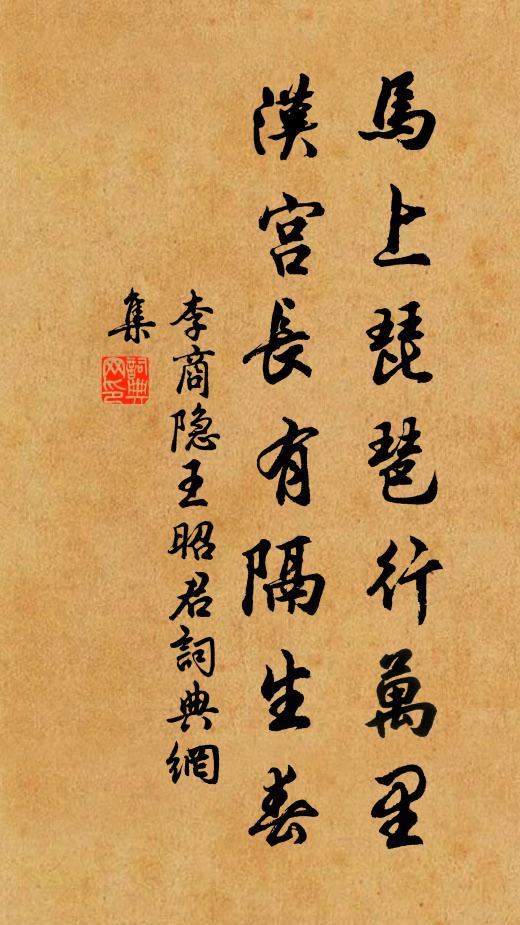 馬上琵琶行萬里
漢宮長有隔生春
李商隐王昭君詞典網
集
詞典
网印